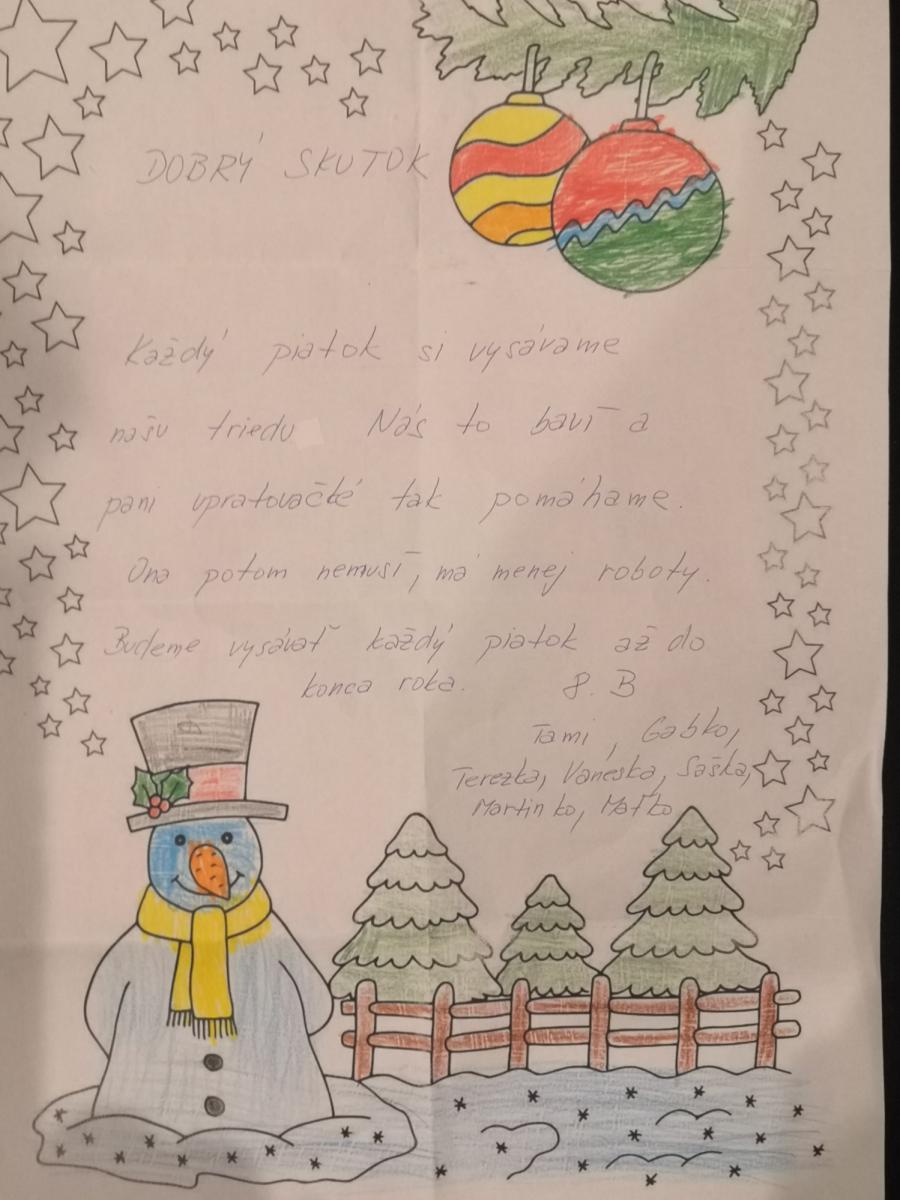 DOBRÝ SKUTOK
Každý piatok si vysávame
našu triedu Nás to baví a
pani upratovačké tak pomáhame.
Ona potom nemusí, má menej roboty.
Budeme vysávať každý piatok až do
konca roka. 8. B
Tami, Gabko,
Terezka, Vaneska, Saška,
Martinko, Maťko